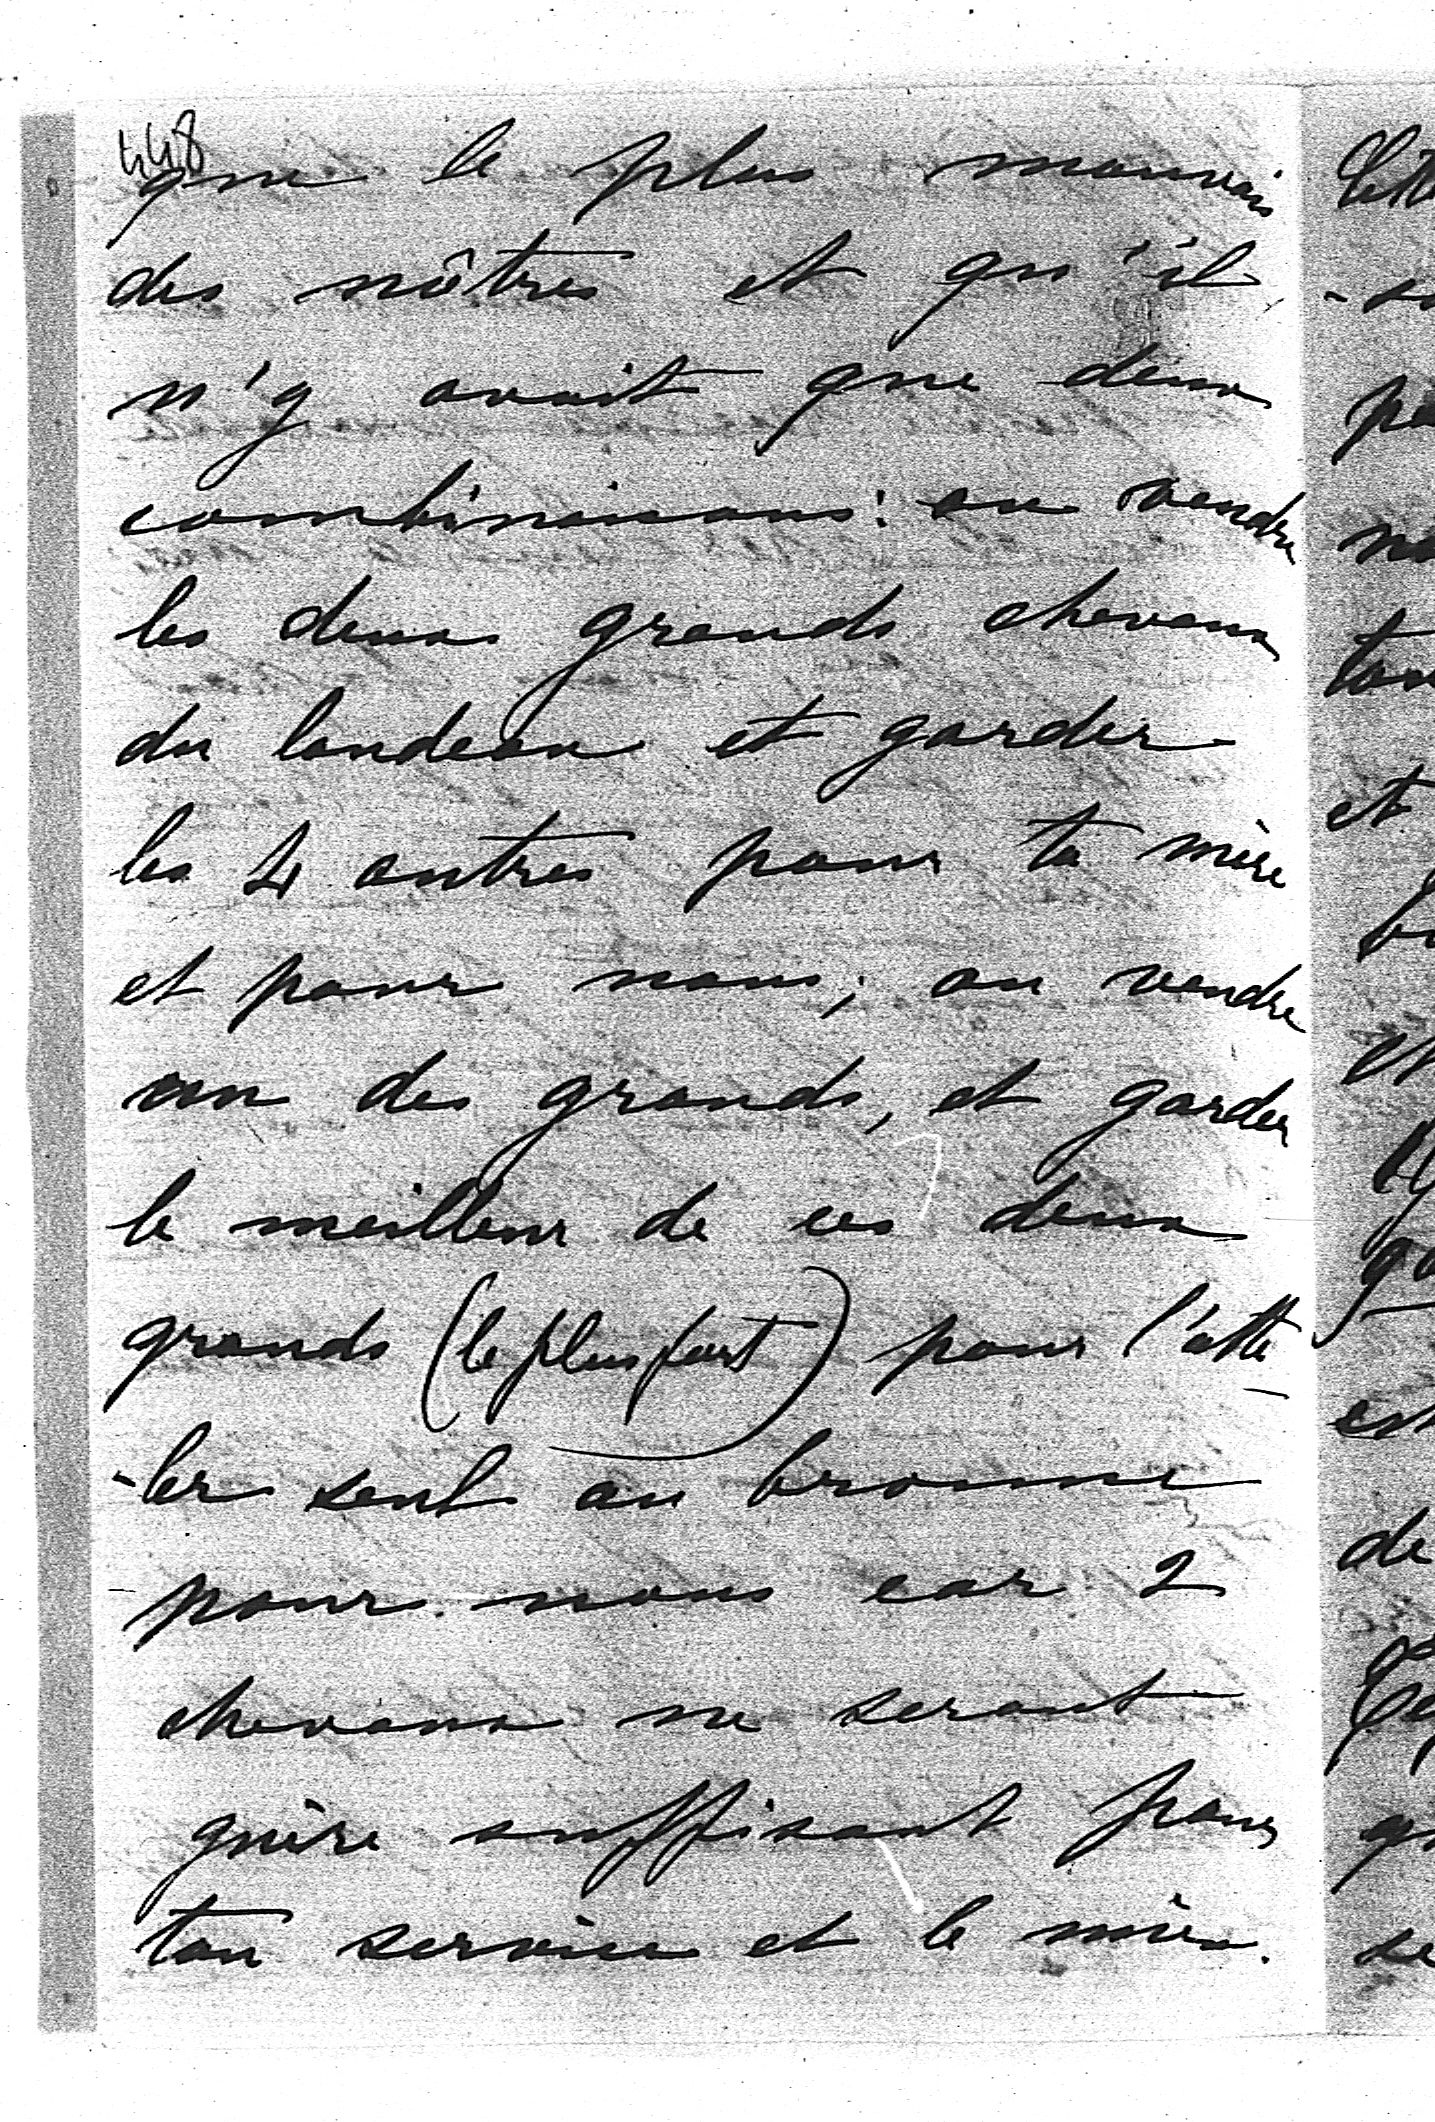 448
que le plus mauvais
des nôtres et qu'il
n'y avait que deux
combinaisons: ou vendre
les deux grands chevaux
du landeau et garder
les 4 autres pour ta mère
et pour nous; ou vendre
un des grands, et garder
le meilleur de ces deux
grands (le plus fort) pour l'atte
-ler seul au broume
pour nous car 2
chevaux ne seront
guère suffisant pour
ton service et le mien.